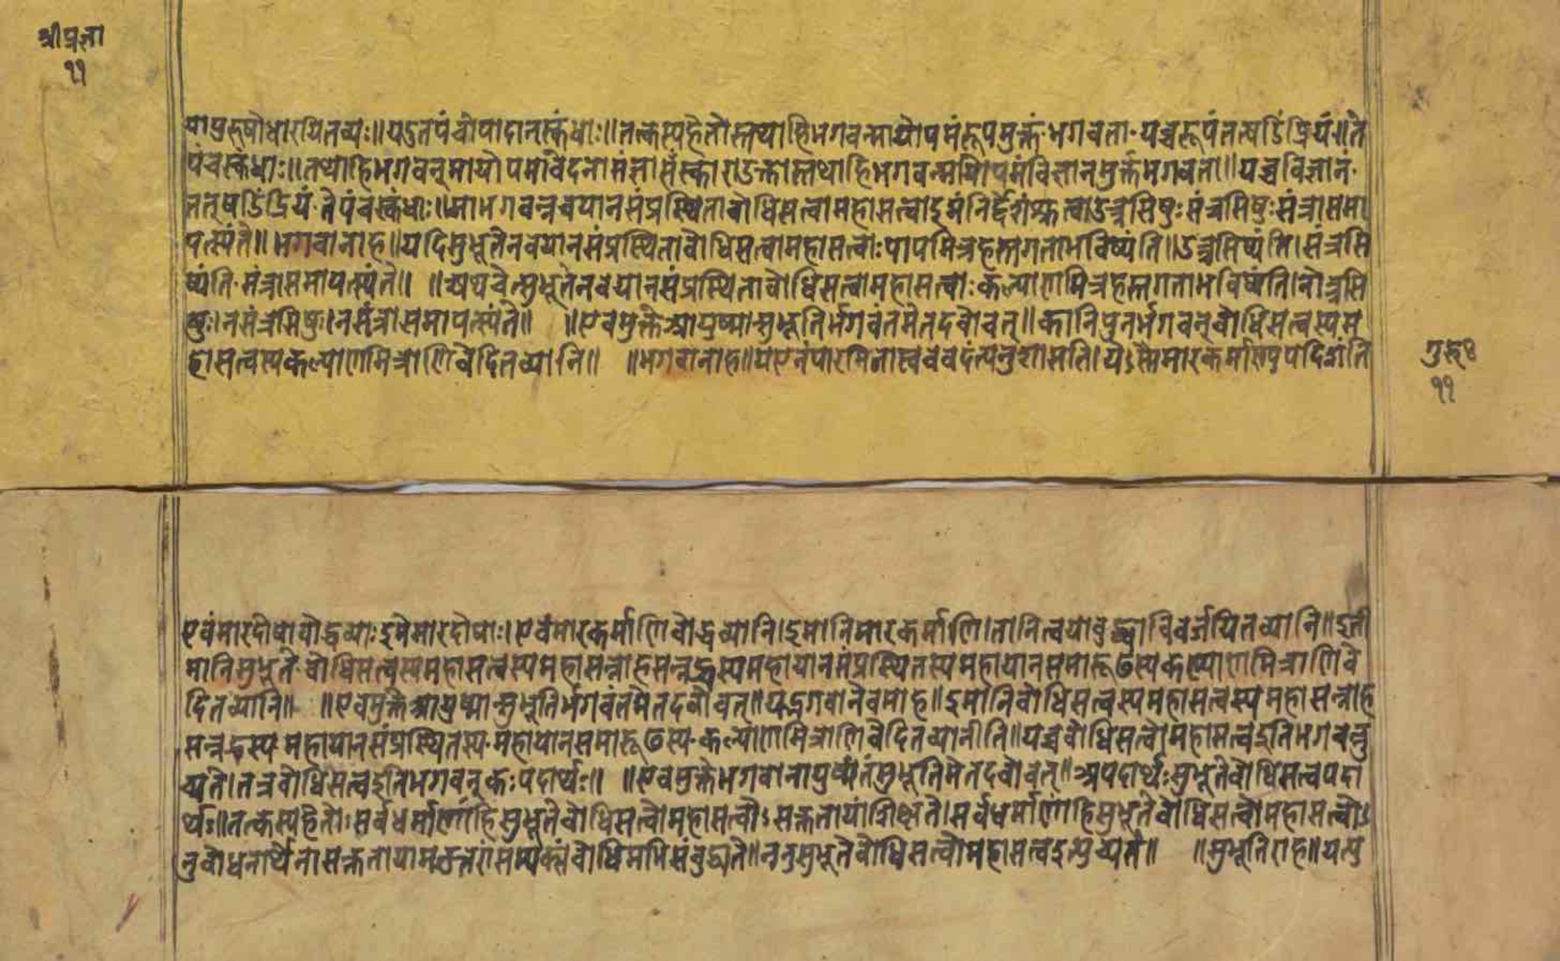 श्रीप्रज्ञा
११
यापुरुषोधारयितव्यः॥यदुतपंचोपादानस्कंधाः॥तत्कस्यहेतोस्तथाहिभगवन्मायोपमंरूपमुक्तंभगवता·यच्चरूपंतत्षडिंद्रियं॥ते
पंचस्कंधाः॥तथाहिभगवन्मायोपमावेदनासंज्ञासंस्काराउक्तास्तथाहिभगवन्मायोपमंविज्ञानमुक्तंभगवता॥यच्चविज्ञानं·
तत्षडिंद्रियं·तेपंचस्कंधाः॥माभगवन्नवयानसंप्रस्थिताबोधिसत्वामहासत्वाइमंनिर्द्देशंश्रुत्वाउत्त्रसिषुःसंत्रसिषुःसंत्रासमा
पत्स्यंते॥भगवानाह॥यदिसुभूतेनवयानसंप्रस्थिताबोधिसत्वामहासत्वाःपापमित्रहस्तगताभविष्यंति॥उत्त्रसिष्यंति।संत्रसि
ष्यंति·संत्रासमापत्स्यंते॥ ॥अथचेत्सुभूतेनवयानसंप्रस्थिताबोधिसत्वामहासत्वाःकल्याणमित्रहस्तगताभविष्यंति।नोत्त्रसि
षुः।नसंत्रसिषुः।नसंत्रासमापत्स्यंते॥ ॥एवमुक्तेआयुष्मान्सुभूतिर्भगवंतमेतदवोचत्॥कानिपुनर्भगवन्बोधिसत्वस्यम
हासत्वस्यकल्याणमित्राणिवेदितव्यानि॥ ॥भगवानाह॥यएनंपारमितास्वववदंत्यनुशासति।येऽस्मैमारकर्माण्युपदिशंति
गुरुः
११
एवंमारदोषाबोद्धव्याःइमेमारदोषाः।एवंमारकर्माणिबोद्धव्यानि।इमानिमारकर्माणि।तानित्वयाबुद्ध्वाविवर्जयितव्यानि॥इती
मानिसुभूते·बोधिसत्वस्यमहासत्वस्यमहासन्नाहसन्नद्धस्यमहायानसंप्रस्थितस्यमहायानसमारूढस्यकल्याणमित्राणिवे
दितव्यानि॥ ॥एवमुक्तेआयुष्मान्सुभूतिर्भगवंतमेतदवोचत्॥यद्भगवानेवमाह॥इमानिबोधिसत्वस्यमहासत्वस्यमहासन्नाह
सन्नद्धस्य·महायानसंप्रस्थितस्य·महायानसमारूढस्य·कल्याणमित्राणिवेदितव्यानीति॥यच्चबोधिसत्वोमहासत्वइतिभगवन्नु
च्यते।तत्रबोधिसत्वइतिभगवन्कःपदार्थः॥ ॥एवमुक्तेभगवानायुष्मंतंसुभूतिमेतदवोचत्॥अपदार्थःसुभूतेबोधिसत्वपदा
र्थः॥तत्कस्यहेतोःसर्वधर्माणांहिसुभूतेबोधिसत्वोमहासत्वोऽसक्ततायांशिक्षते।सर्वधर्माणांहिसुभूतेबोधिसत्वोमहासत्वोऽ
नुबोधनार्थेनासक्ततायामनुत्तरांसम्यक्संबोधिमभिसंबुद्ध्यते॥ननुसुभूतेबोधिसत्वोमहासत्वइत्युच्यते॥ ॥सुभूतिराह॥यत्पु